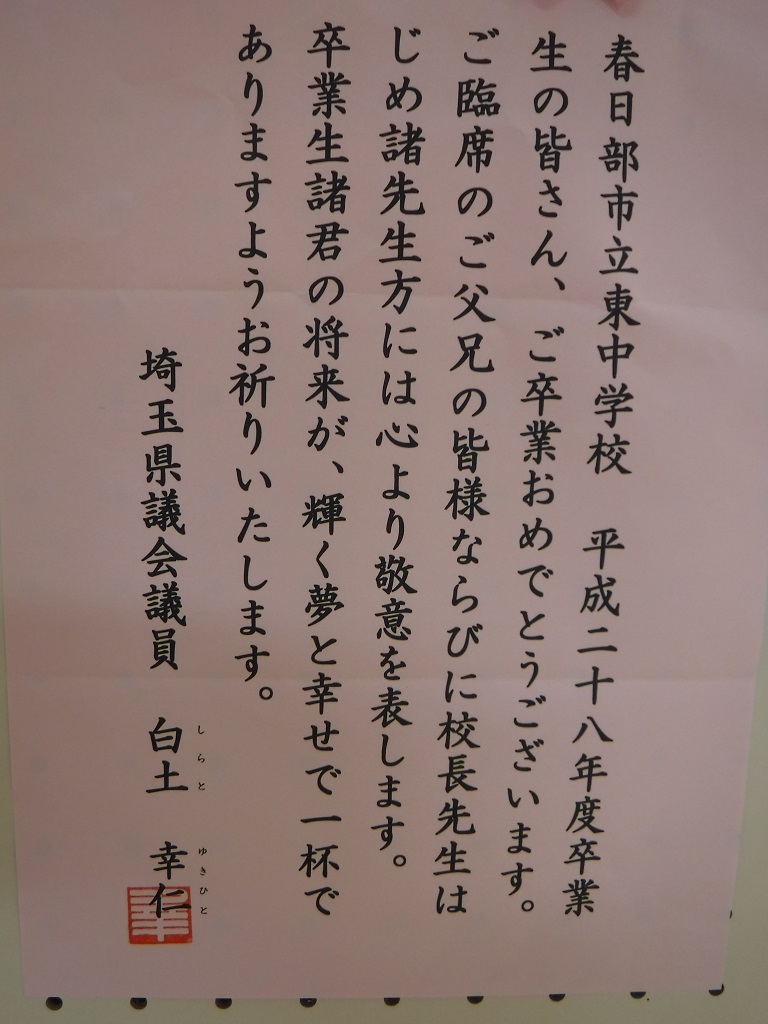 春日部市立東中学校　平成二十八年度卒業
生の皆さん、ご卒業おめでとうございます。
ご臨席のご父兄の皆様ならびに校長先生は
じめ諸先生方には心より敬意を表します。
卒業生諸君の将来が、輝く夢と幸せで一杯で
ありますようお祈りいたします。
埼玉県議会議員　白土　幸仁
しらと　ゆきひと